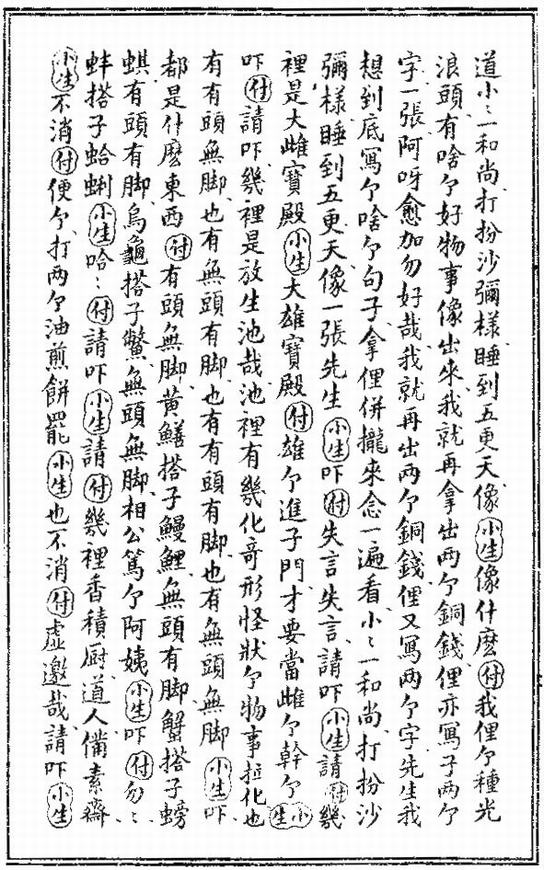 道小〻一和尚打扮沙彌樣睡到五更天像小生像什麽付我俚个種光
浪頭有啥个好物事像出來我就再拿出两个銅錢俚亦寫子两个
字一張阿呀愈加勿好哉我就再出两个銅錢俚又寫两个字先生我
想到底寫个啥个句子拿俚併攏來念一遍看小〻一和尚打扮沙
彌樣睡到五更天像一張先生小生吓付失言失言請吓小生請付幾
裡是大雌寶殿小生大雄寶殿付雄个進子門才要當雌个幹个小生
吓付請吓幾裡是放生池哉池裡有幾化竒形怪狀个物事拉化也
有有頭無脚也有無頭有脚也有有頭有脚也有無頭無脚小生吓
都是什麽東西付有頭無脚黄鱔搭子鰻鯉無頭有脚蟹搭子螃
蜞有頭有脚烏龜搭子鱉無頭無脚相公篤个阿姨小生吓付勿〻
蚌搭子蛤蜊小生哈〻付請吓小生請付幾裡香積厨道人備素齋
小生不消付便个打两个油煎餅罷小生也不消付虚邀哉請吓小生